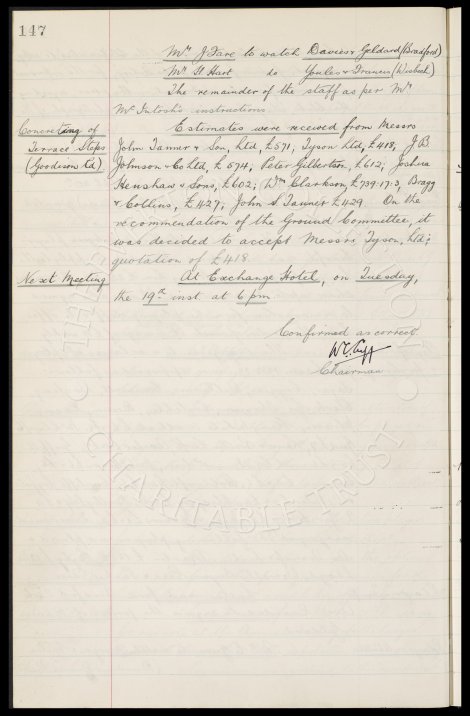 147
Mr J Fare to watch Davies & Geldard (Bradford)
Mr H Hart do Youles & Francis (Wisbech)
The remainder of the staff as per Mr
McIntosh's instructions
Concreting of Terrace Steps (Goodison Rd)
Estimates were received from Messrs
John Tanner & Son, Ltd, £571, Tyson Ltd, £418, J B
Johnson & Co Ltd, £574; Peter Gilbertson, £612; Joshua
Henshaw & Sons, £602; Wm Clarkson, £739.17.3, Bragg
& Collins, £427; John S Tanner £429. On the
recommendation of the Ground Committee, it
was decided to accept Messrs Tyson, Ltd's
quotation of £418
Next Meeting
At Exchange Hotel, on Tuesday,
the 19th inst at 6 pm
Confirmed as correct
W.C. Cuff
Chairman
CHARITABLE TRUST